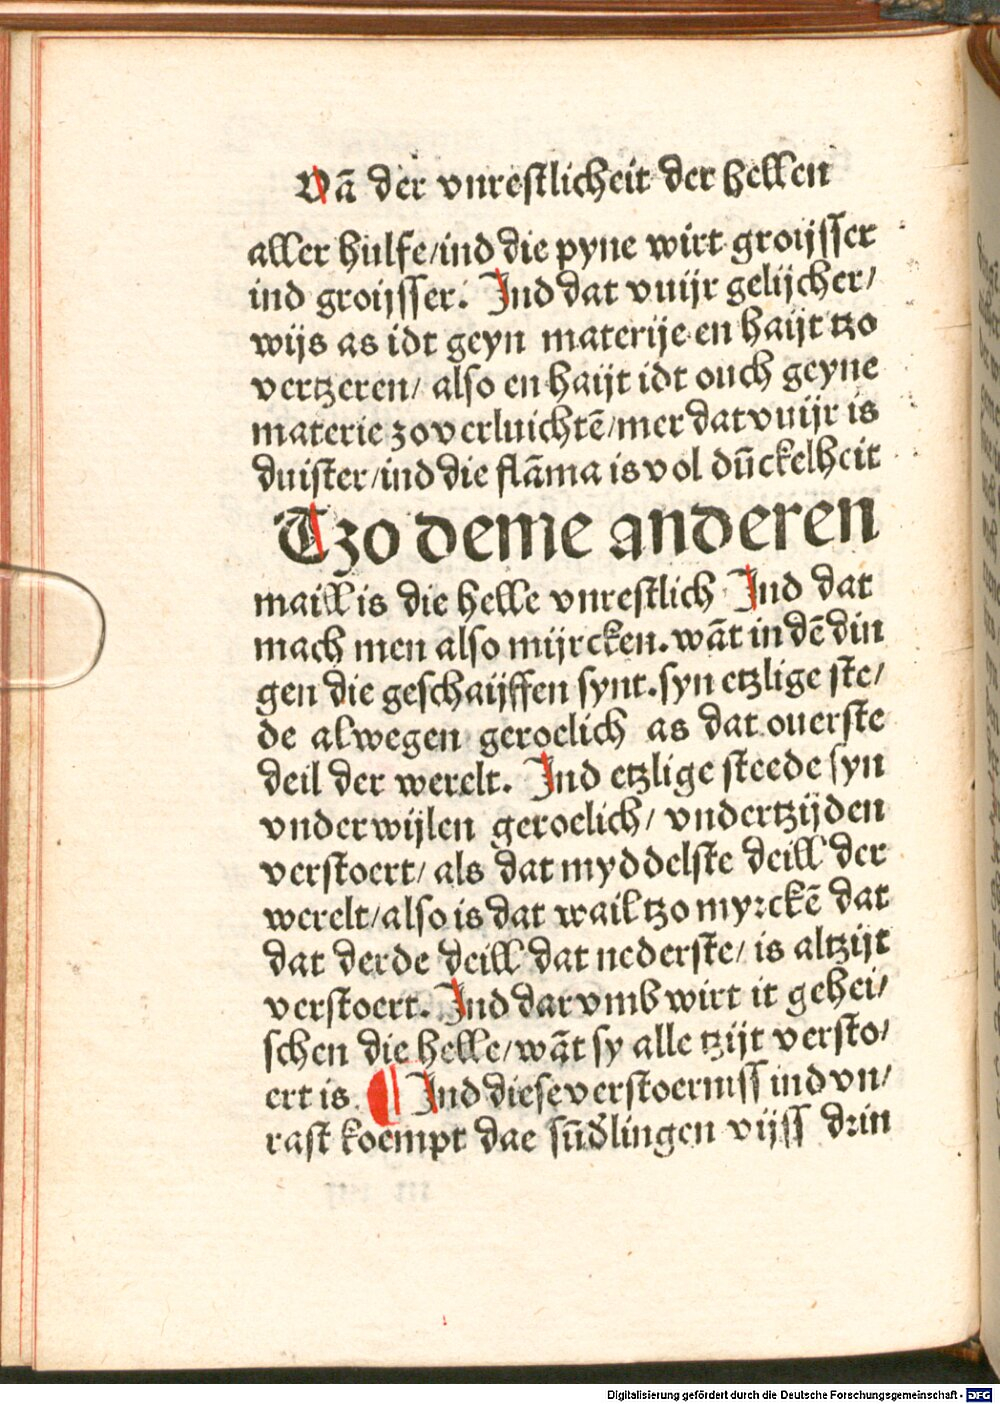 Uā der vnrestlicheit der hellen
aller hulfe/ind die pyne wirt groijsser
ind groijsser. Ind dat vuijr gelijcher/
wijs as idt geyn materije en haijt tzo
vertzeren/ also en haijt idt ouch geyne
materie zo verluichtē/mer dat vuijr is
duister/ind die flāma is vol dūckelheit
Tzo deme anderen
maill is die helle vnrestlich Ind dat
mach men also mijrcken. wāt in dē din
gen die geschaijffen synt. syn etzlige ste/
de alwegen geroelich as dat ouerste
deil der werelt. Ind etzlige steede syn
vnderwijlen geroelich/ vndertzijden
verstoert/ als dat myddelste deill der
werelt/also is dat wail tzo myrckē dat
dat derde deill dat nederste/ is altzijt
verstoert. Ind dar vmb wirt it gehei/
schen die helle/wāt sy alle tzijt versto/
ert is. ¶ Ind diese verstoerniss ind vn/
rast koempt dae sūdlingen vijss drin
Digitalisierung gefördert durch die Deutsche Forschungsgemeinschaft - DFG